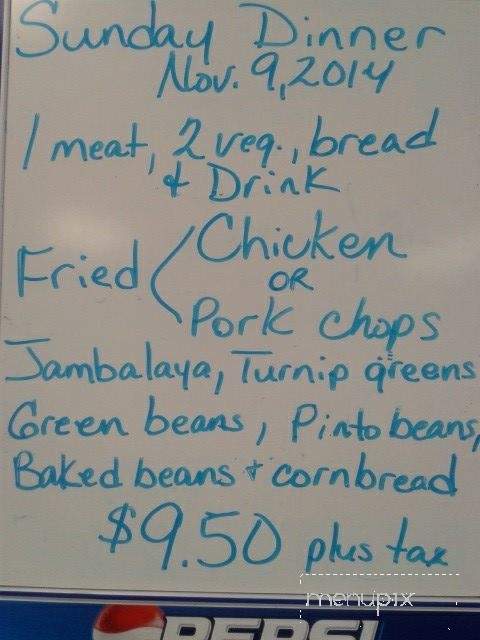 Sunday Dinner
Nov. 9, 2014
1 meat, 2 veg., bread
& Drink
Fried Chicken
OR
Pork chops
Jambalaya, Turnip greens
Green beans, Pinto beans,
Baked beans & cornbread
$9.50 plus tax
menupix
PEPSI